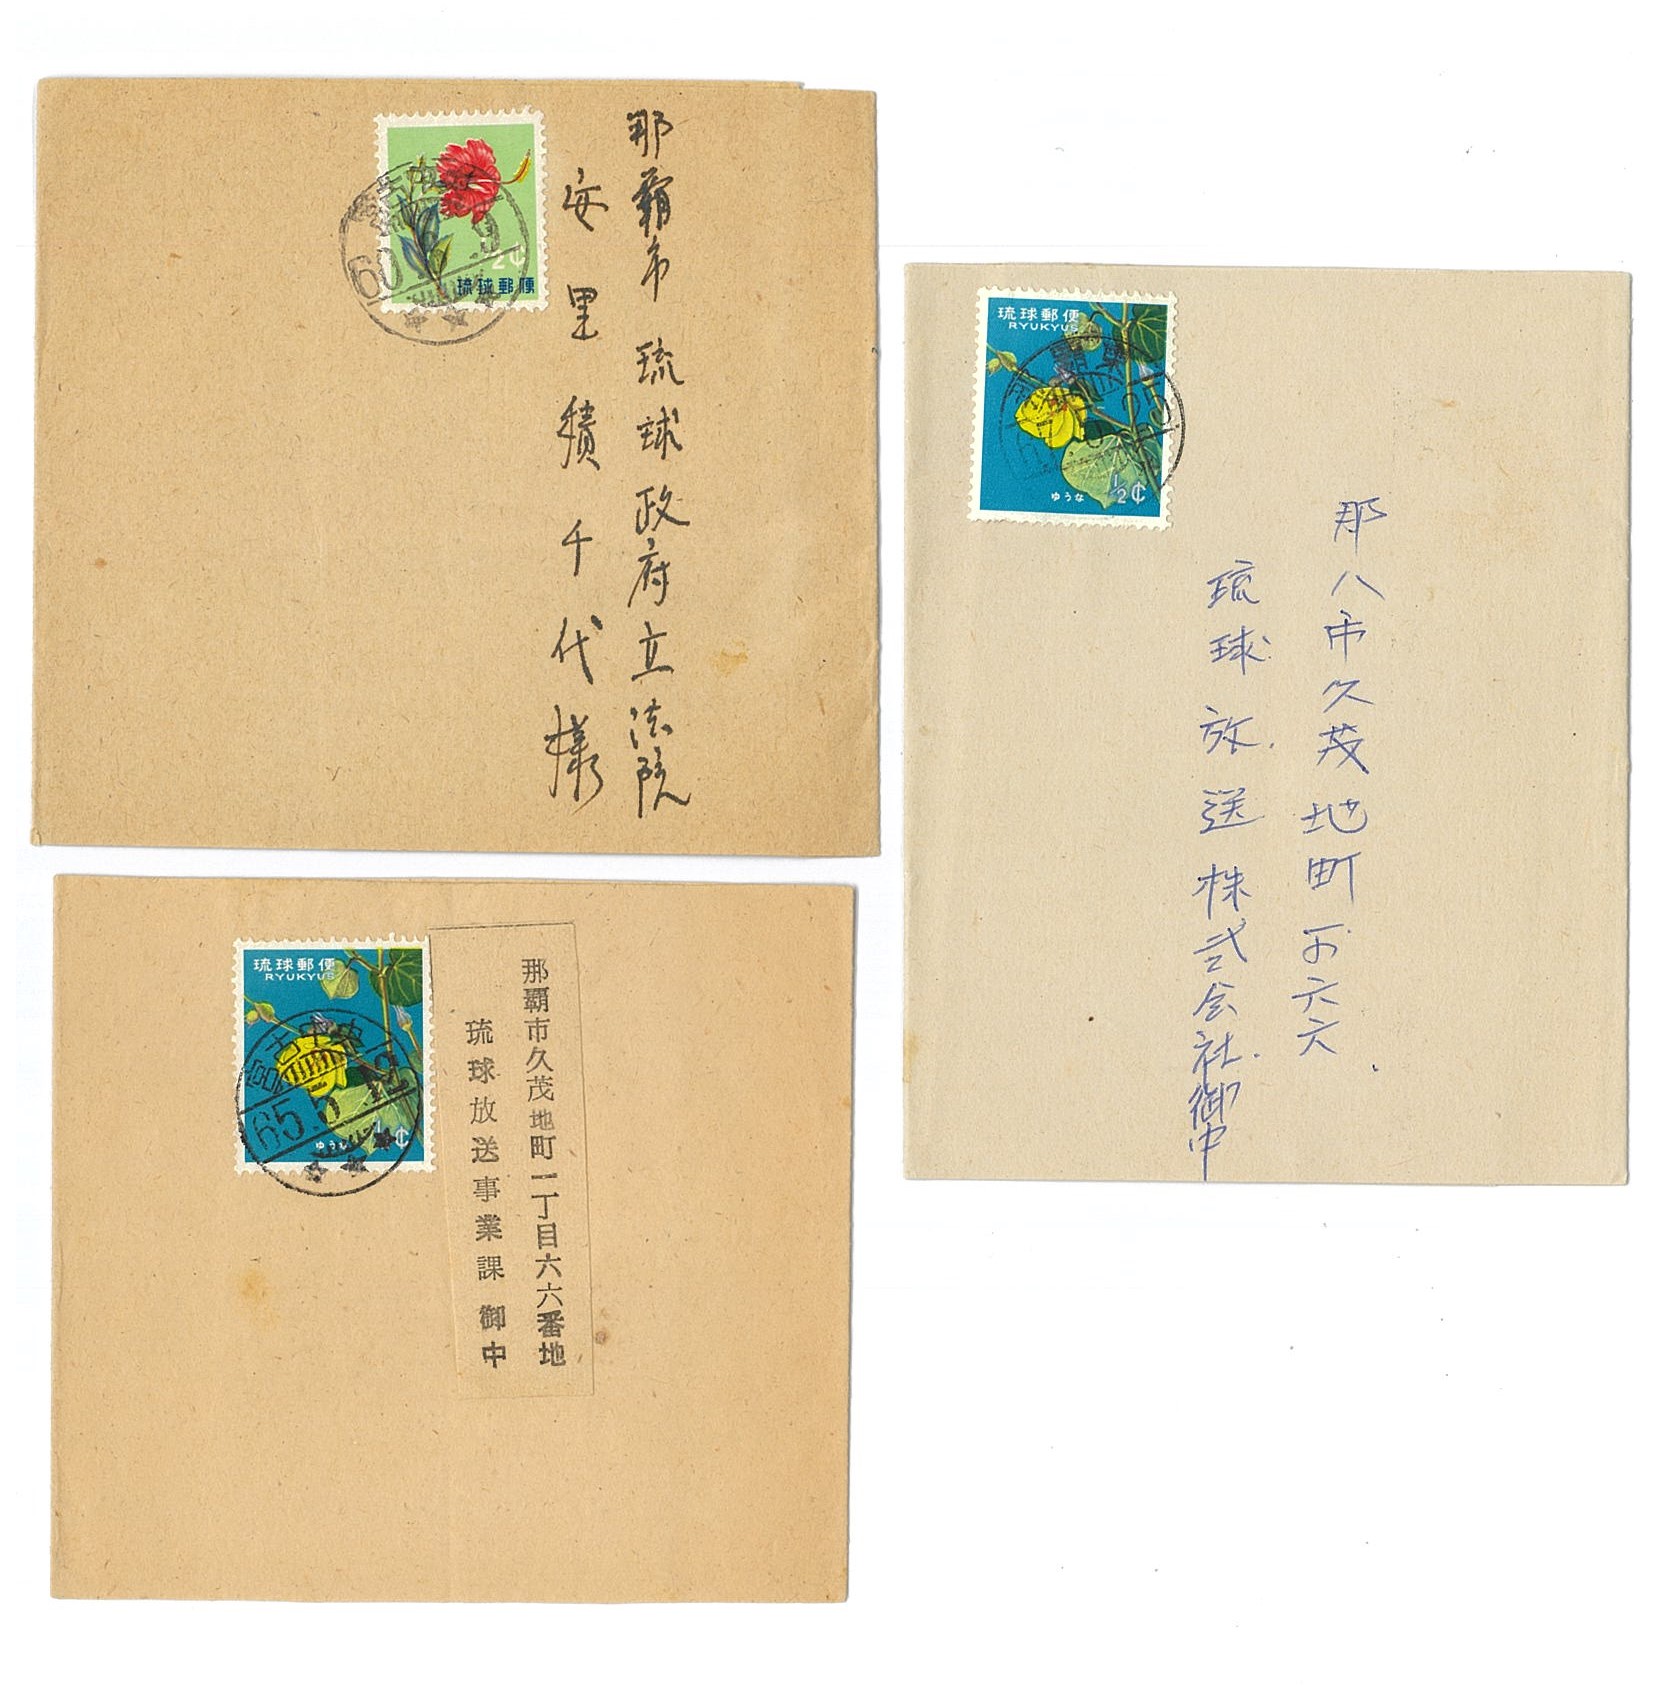 ½¢
琉球郵便
那覇市琉球政府立法院
安里積千代様
琉球郵便
RYUKYUS
ゆうな
½¢
那八市久茂地町
六六
琉球放送株式会社御中
琉球郵便
RYUKYUS
ゆうな
宮古中央
65.5.19
那覇市久茂地町一丁目六六番地
琉球放送事業課御中